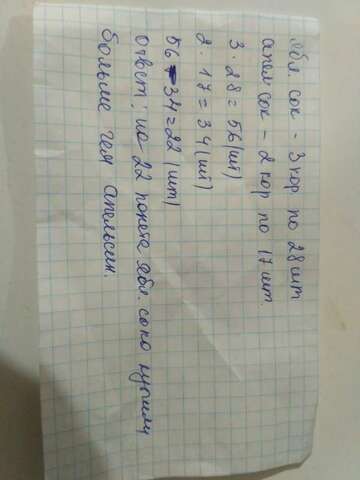 Ябл. сок - 3 кор по 28 шт
апел. сок - 2 кор по 17 шт.
3 · 28 = 56 (шт)
2 · 17 = 34 (шт)
56 - 34 = 22 (шт)
ответ: на 22 пакета ябл. сока купили
больше чем апельсин.